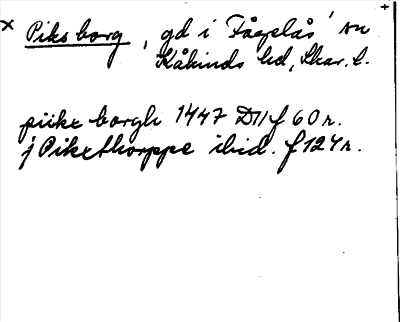 × Piksborg, gd i Fågelås sn
Kåkinds hd, Skar. l.
piike borgh 1447 D11 f 60 r.
j Pikethorppe ibid. f 124 r.